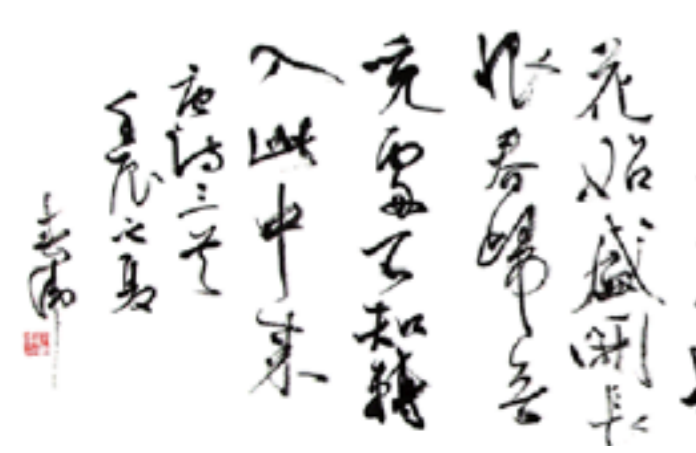 花始盛開長
恨春歸無
覓處不知轉
入此中來
唐詩三首
壬辰之夏